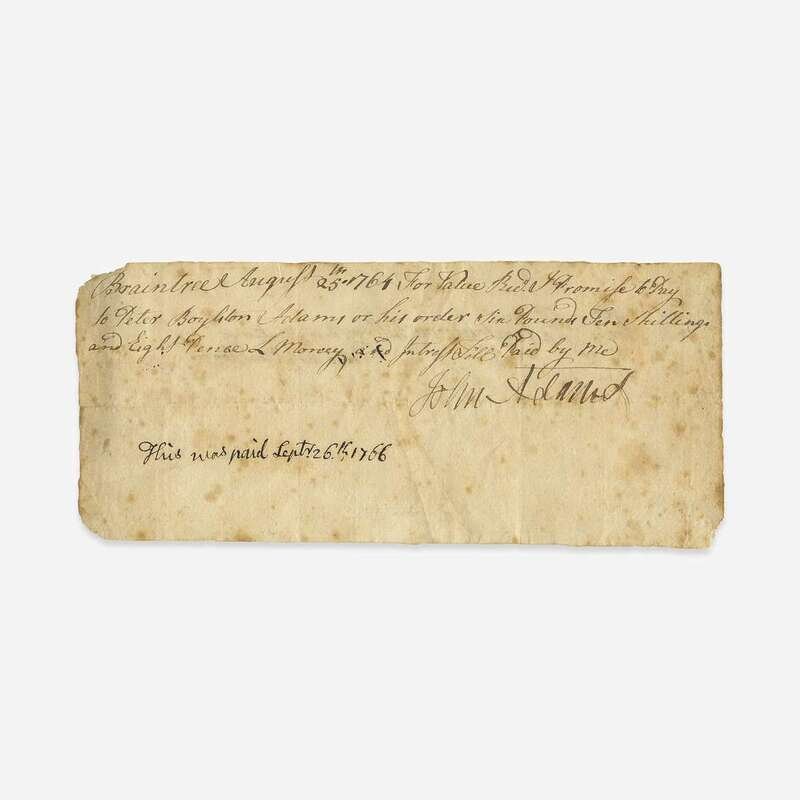 Braintree August 25th 1764 For Value Recd. I Promise to Pay
to Peter Boylston Adams or his order Six Pounds Ten Shillings
and Eight Pence L Money and Intrest till Paid by me
John Adams
This was paid Septr. 26th. 1766